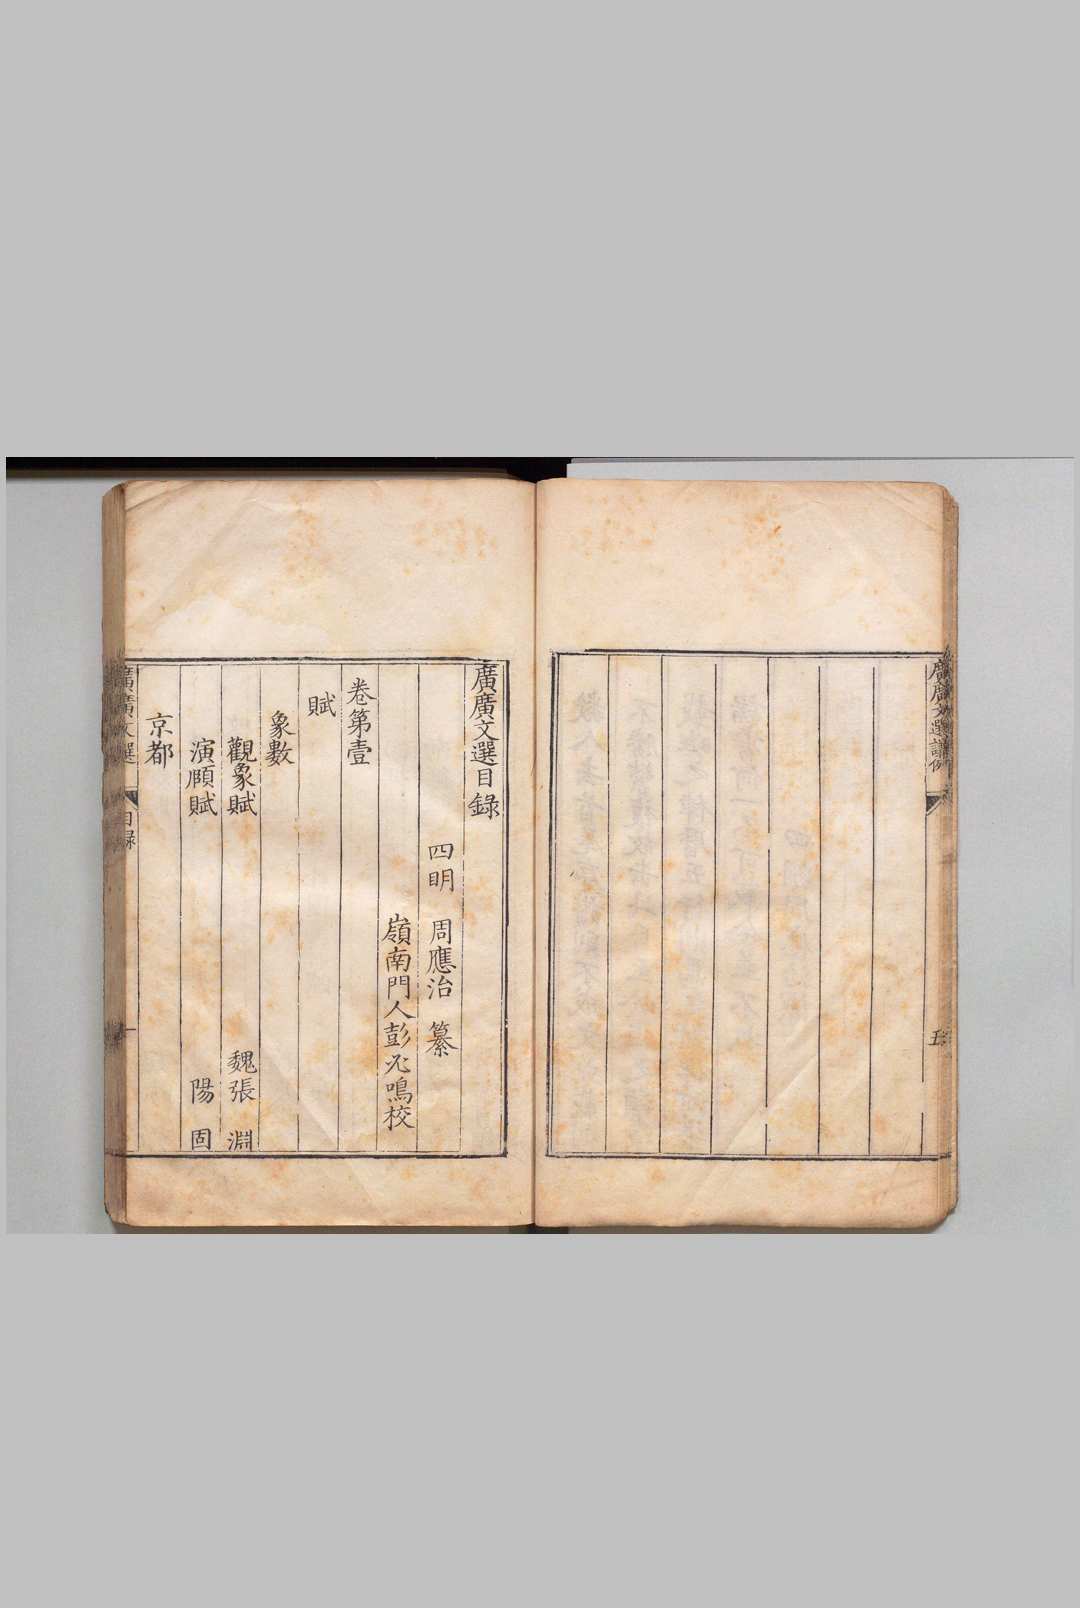 廣廣文選目錄
四明　周應治　纂
嶺南門人彭　鳴校
卷第壹
賦
象數
觀象賦　魏張　淵
演賾賦　陽　固
京都
廣廣文選
目録
廣廣文選
五